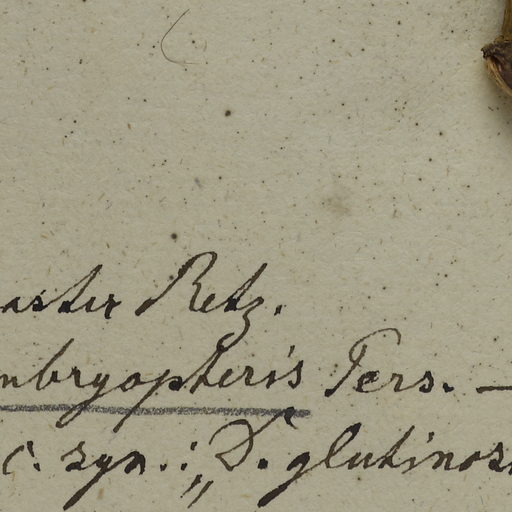 aster Retz.
mbryopteris Pers. —
c. syn.: „D. glutinos